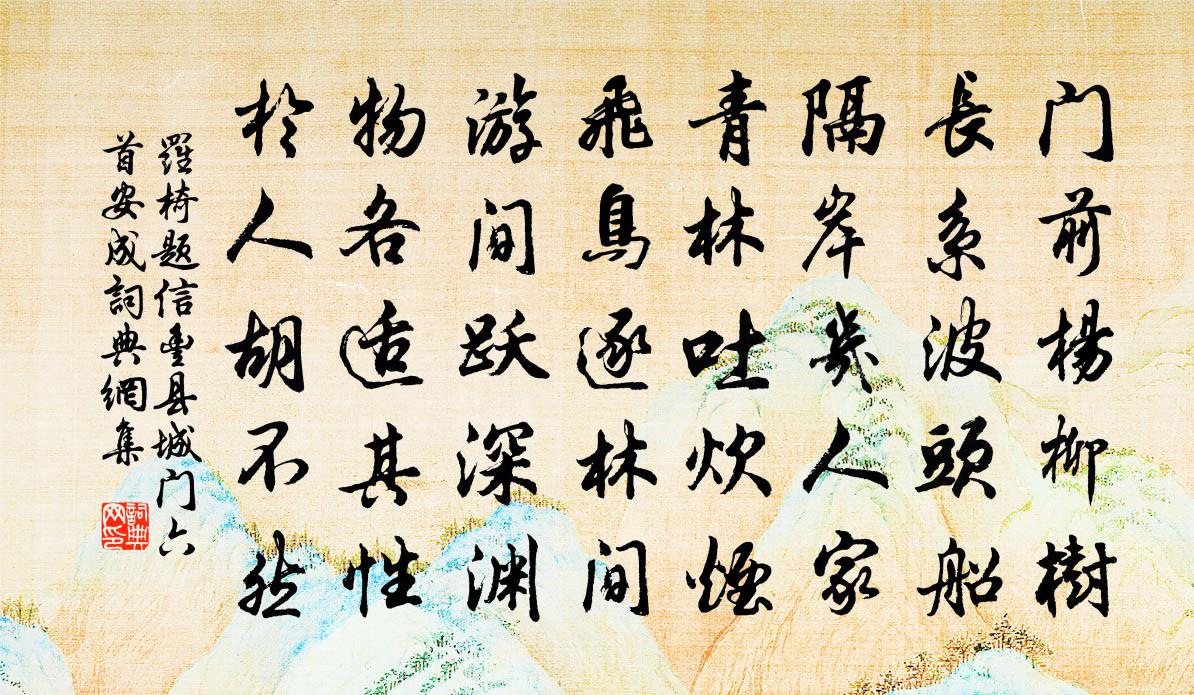 门前杨柳樹
長系波頭船
隔岸幾人家
青林吐炊煙
飛鳥逐林间
游间跃深渊
物各适其性
於人胡不然
羅椅题信豐县城门六
首安成詞典網集
詞典
网印